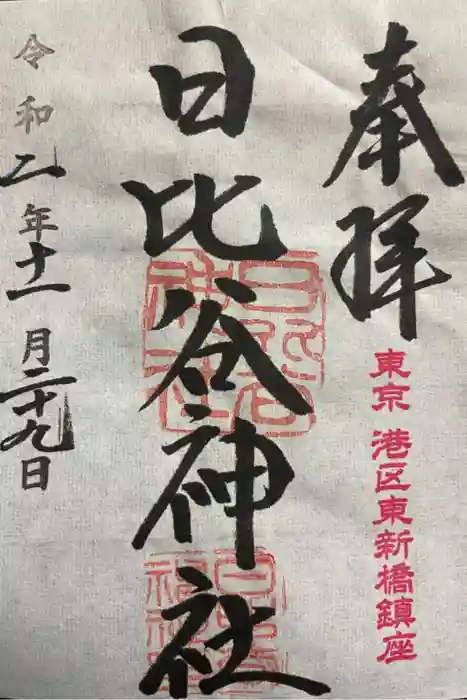 奉拝
東京 港区東新橋鎮座
日比谷神社
令和二年十一月二十九日